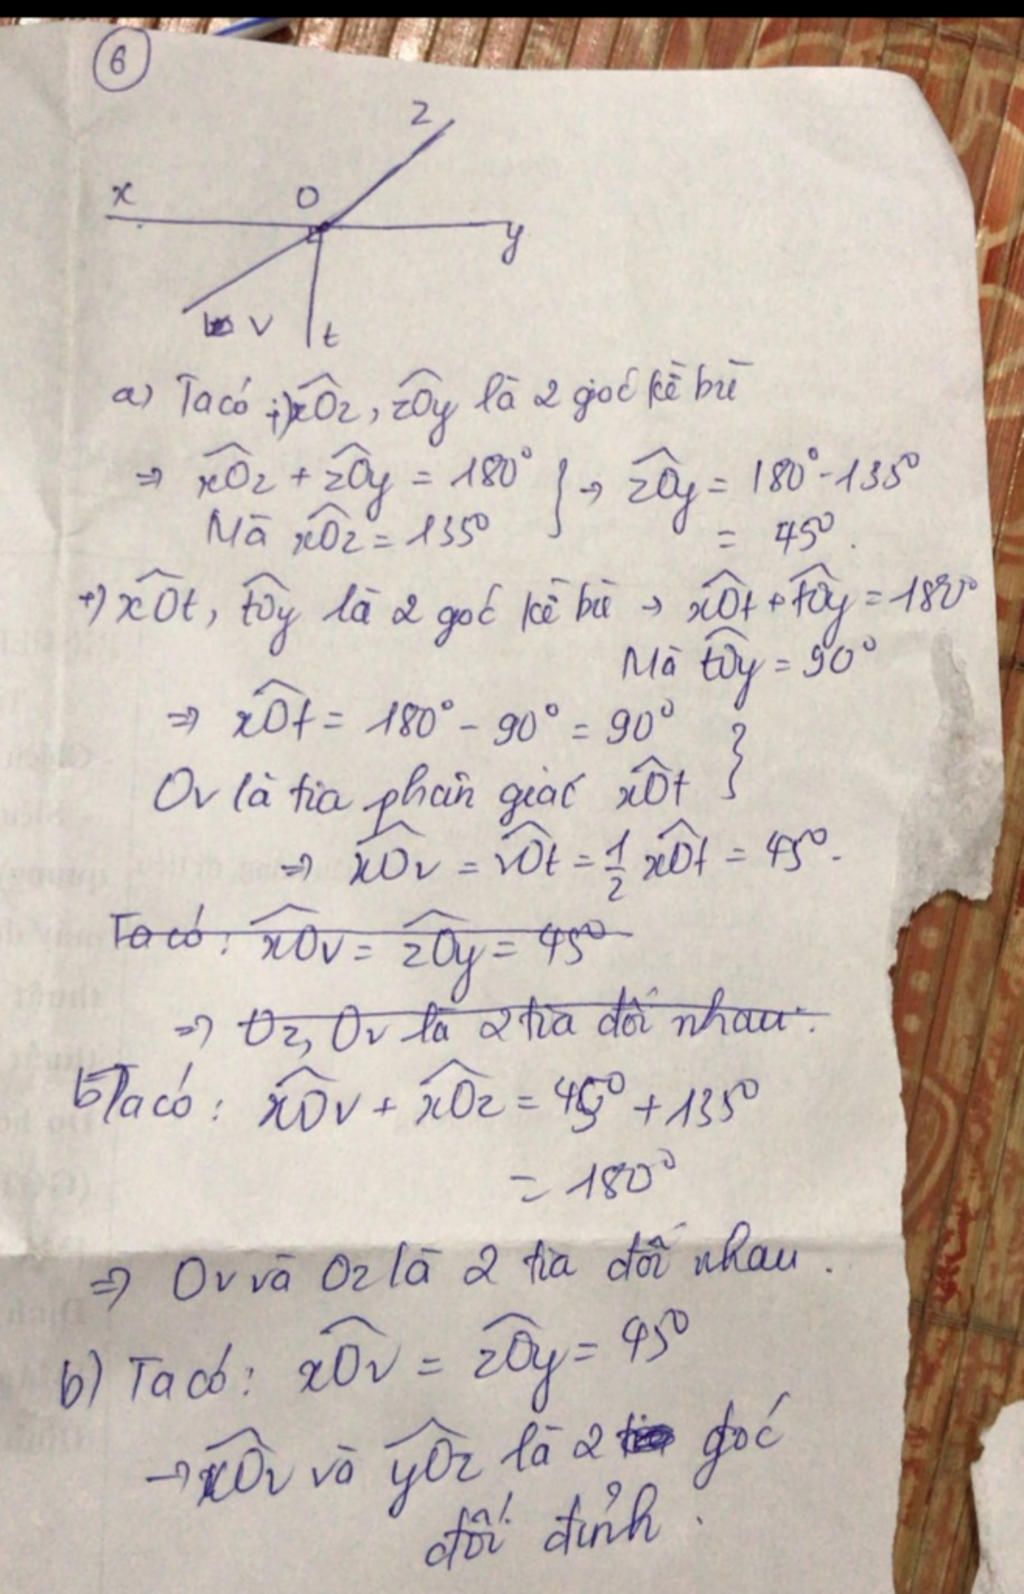 6
z
x
O
y
v
t
a) Ta có +) xOz, zOy là 2 góc kề bù
⇒ xOz + zOy = 180° } → zOy = 180° - 135°
Mà xOz = 135° = 45°.
+) xOt, tOy là 2 góc kề bù → xOt + tOy = 180°
Mà tOy = 90°
⇒ xOt = 180° - 90° = 90° }
Ov là tia phân giác xOt
⇒ xOv = vOt = 1/2 xOt = 45°.
Ta có: xOv = zOy = 45°
⇒ Oz, Ov là 2 tia đối nhau.
Ta có: xOv + xOz = 45° + 135°
= 180°
⇒ Ov và Oz là 2 tia đối nhau.
b) Ta có: xOv = zOy = 45°
→ xOv và yOz là 2 góc
đối đỉnh.